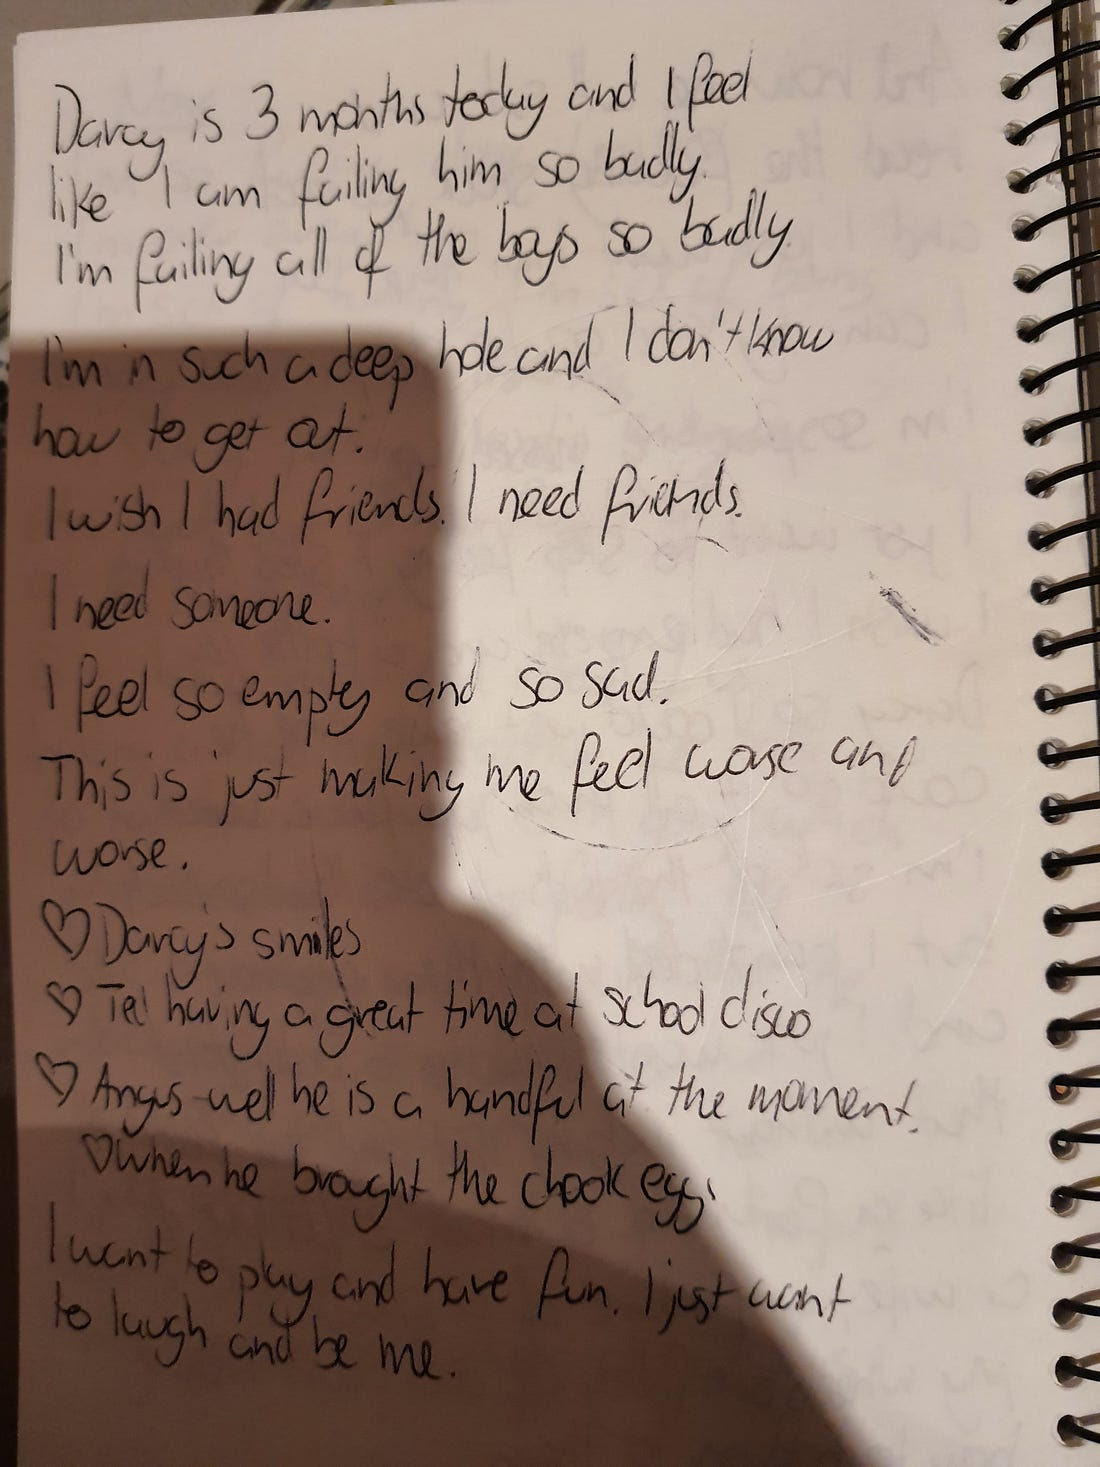 Darcy is 3 months today and I feel
like I am failing him so badly.
I'm failing all of the boys so badly.
I'm in such a deep hole and I don't know
how to get out.
I wish I had friends. I need friends.
I need someone.
I feel so empty and so sad.
This is just making me feel worse and
worse.
♡ Darcy's smiles
♡ having a great time at school disco
♡ Angus - well he is a handful at the moment.
♡ when he brought the chook eggs
I want to play and have fun. I just want
to laugh and be me.